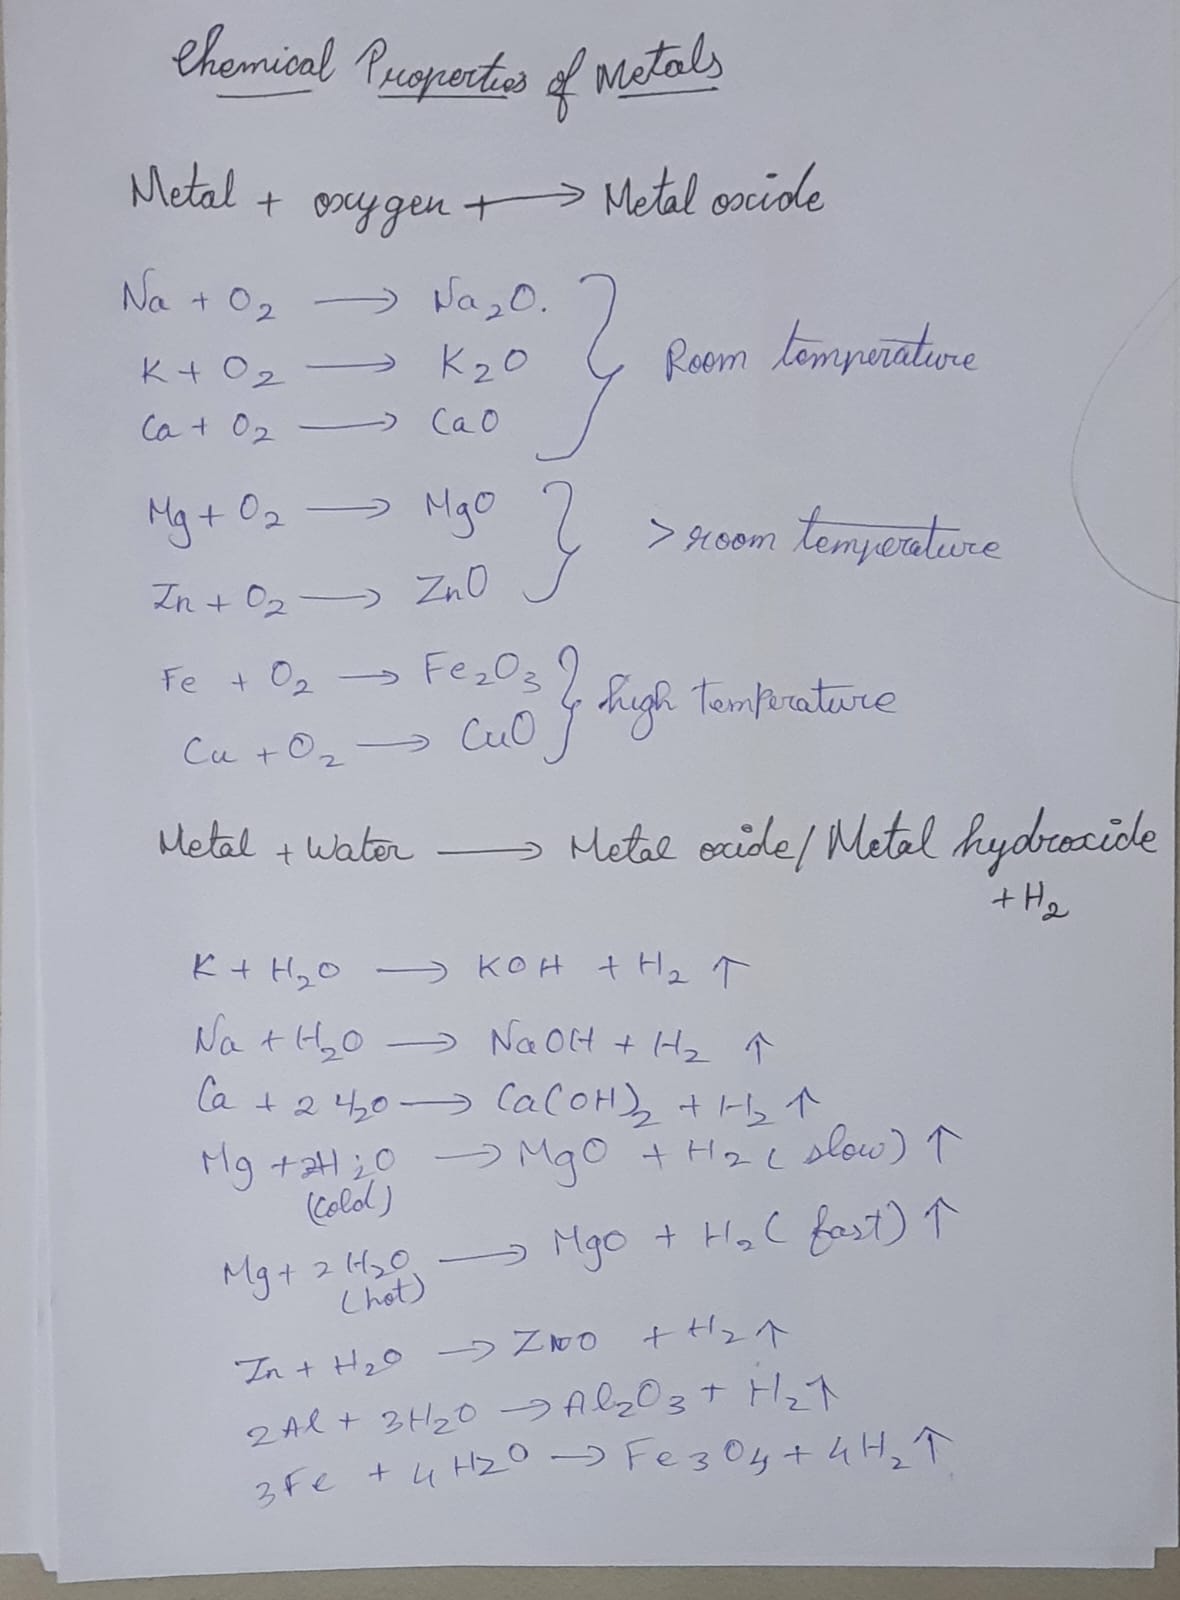 Chemical Properties of Metals
Metal + oxygen + → Metal oxide
Na + O₂ → Na₂O.
K + O₂ → K₂O
Ca + O₂ → CaO
Room temperature
Mg + O₂ → MgO
Zn + O₂ → ZnO
> room temperature
Fe + O₂ → Fe₂O₃
Cu + O₂ → CuO
high temperature
Metal + Water → Metal oxide/ Metal hydroxide
+ H₂
K + H₂O → KOH + H₂ ↑
Na + H₂O → NaOH + H₂ ↑
Ca + 2H₂O → Ca(OH)₂ + H₂ ↑
Mg + 2H₂O → MgO + H₂ (slow) ↑
(cold)
Mg + 2H₂O → MgO + H₂ (fast) ↑
(hot)
Zn + H₂O → ZnO + H₂ ↑
2Al + 3H₂O → Al₂O₃ + H₂ ↑
3Fe + 4H₂O → Fe₃O₄ + 4H₂ ↑